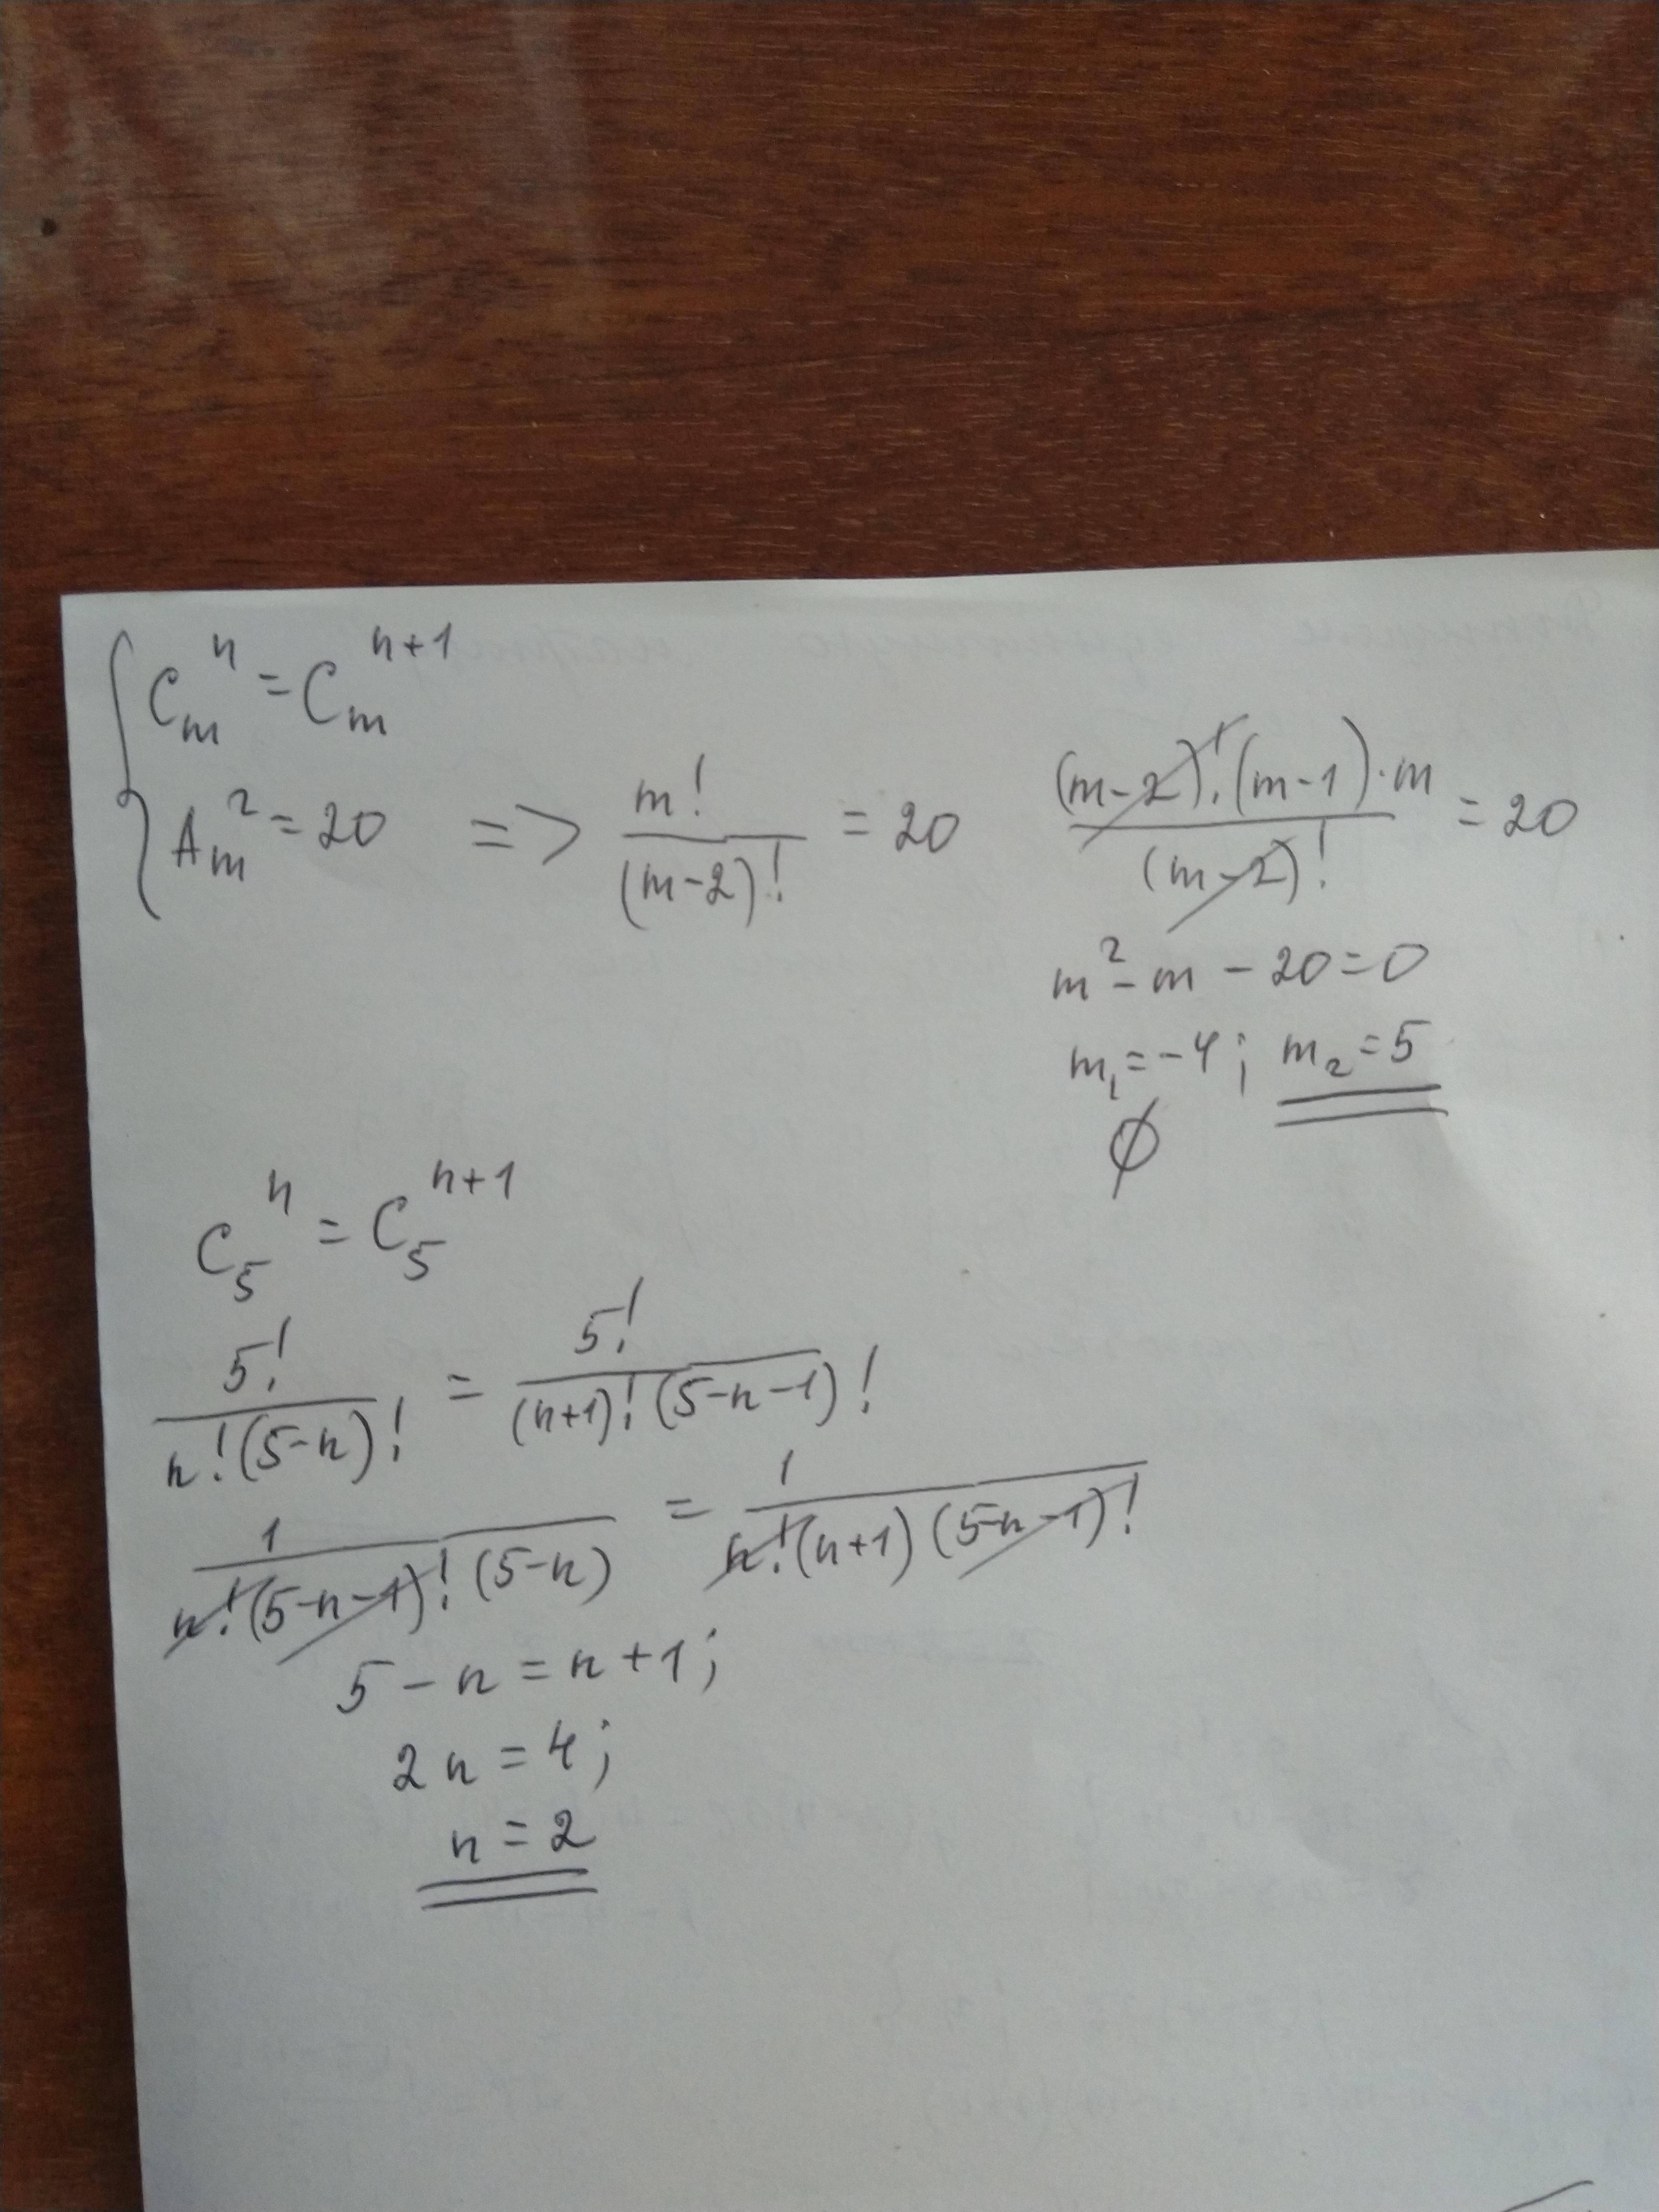 { C_m^n = C_m^{n+1}
A_m^2 = 20 => m!/(m-2)! = 20 (m-2)!(m-1)·m/(m-2)! = 20
m^2 - m - 20 = 0
m_1 = -4; m_2 = 5
∅
C_5^n = C_5^{n+1}
5!/n!(5-n)! = 5!/(n+1)!(5-n-1)!
1/n!(5-n-1)!(5-n) = 1/n!(n+1)(5-n-1)!
5 - n = n + 1;
2n = 4;
n = 2